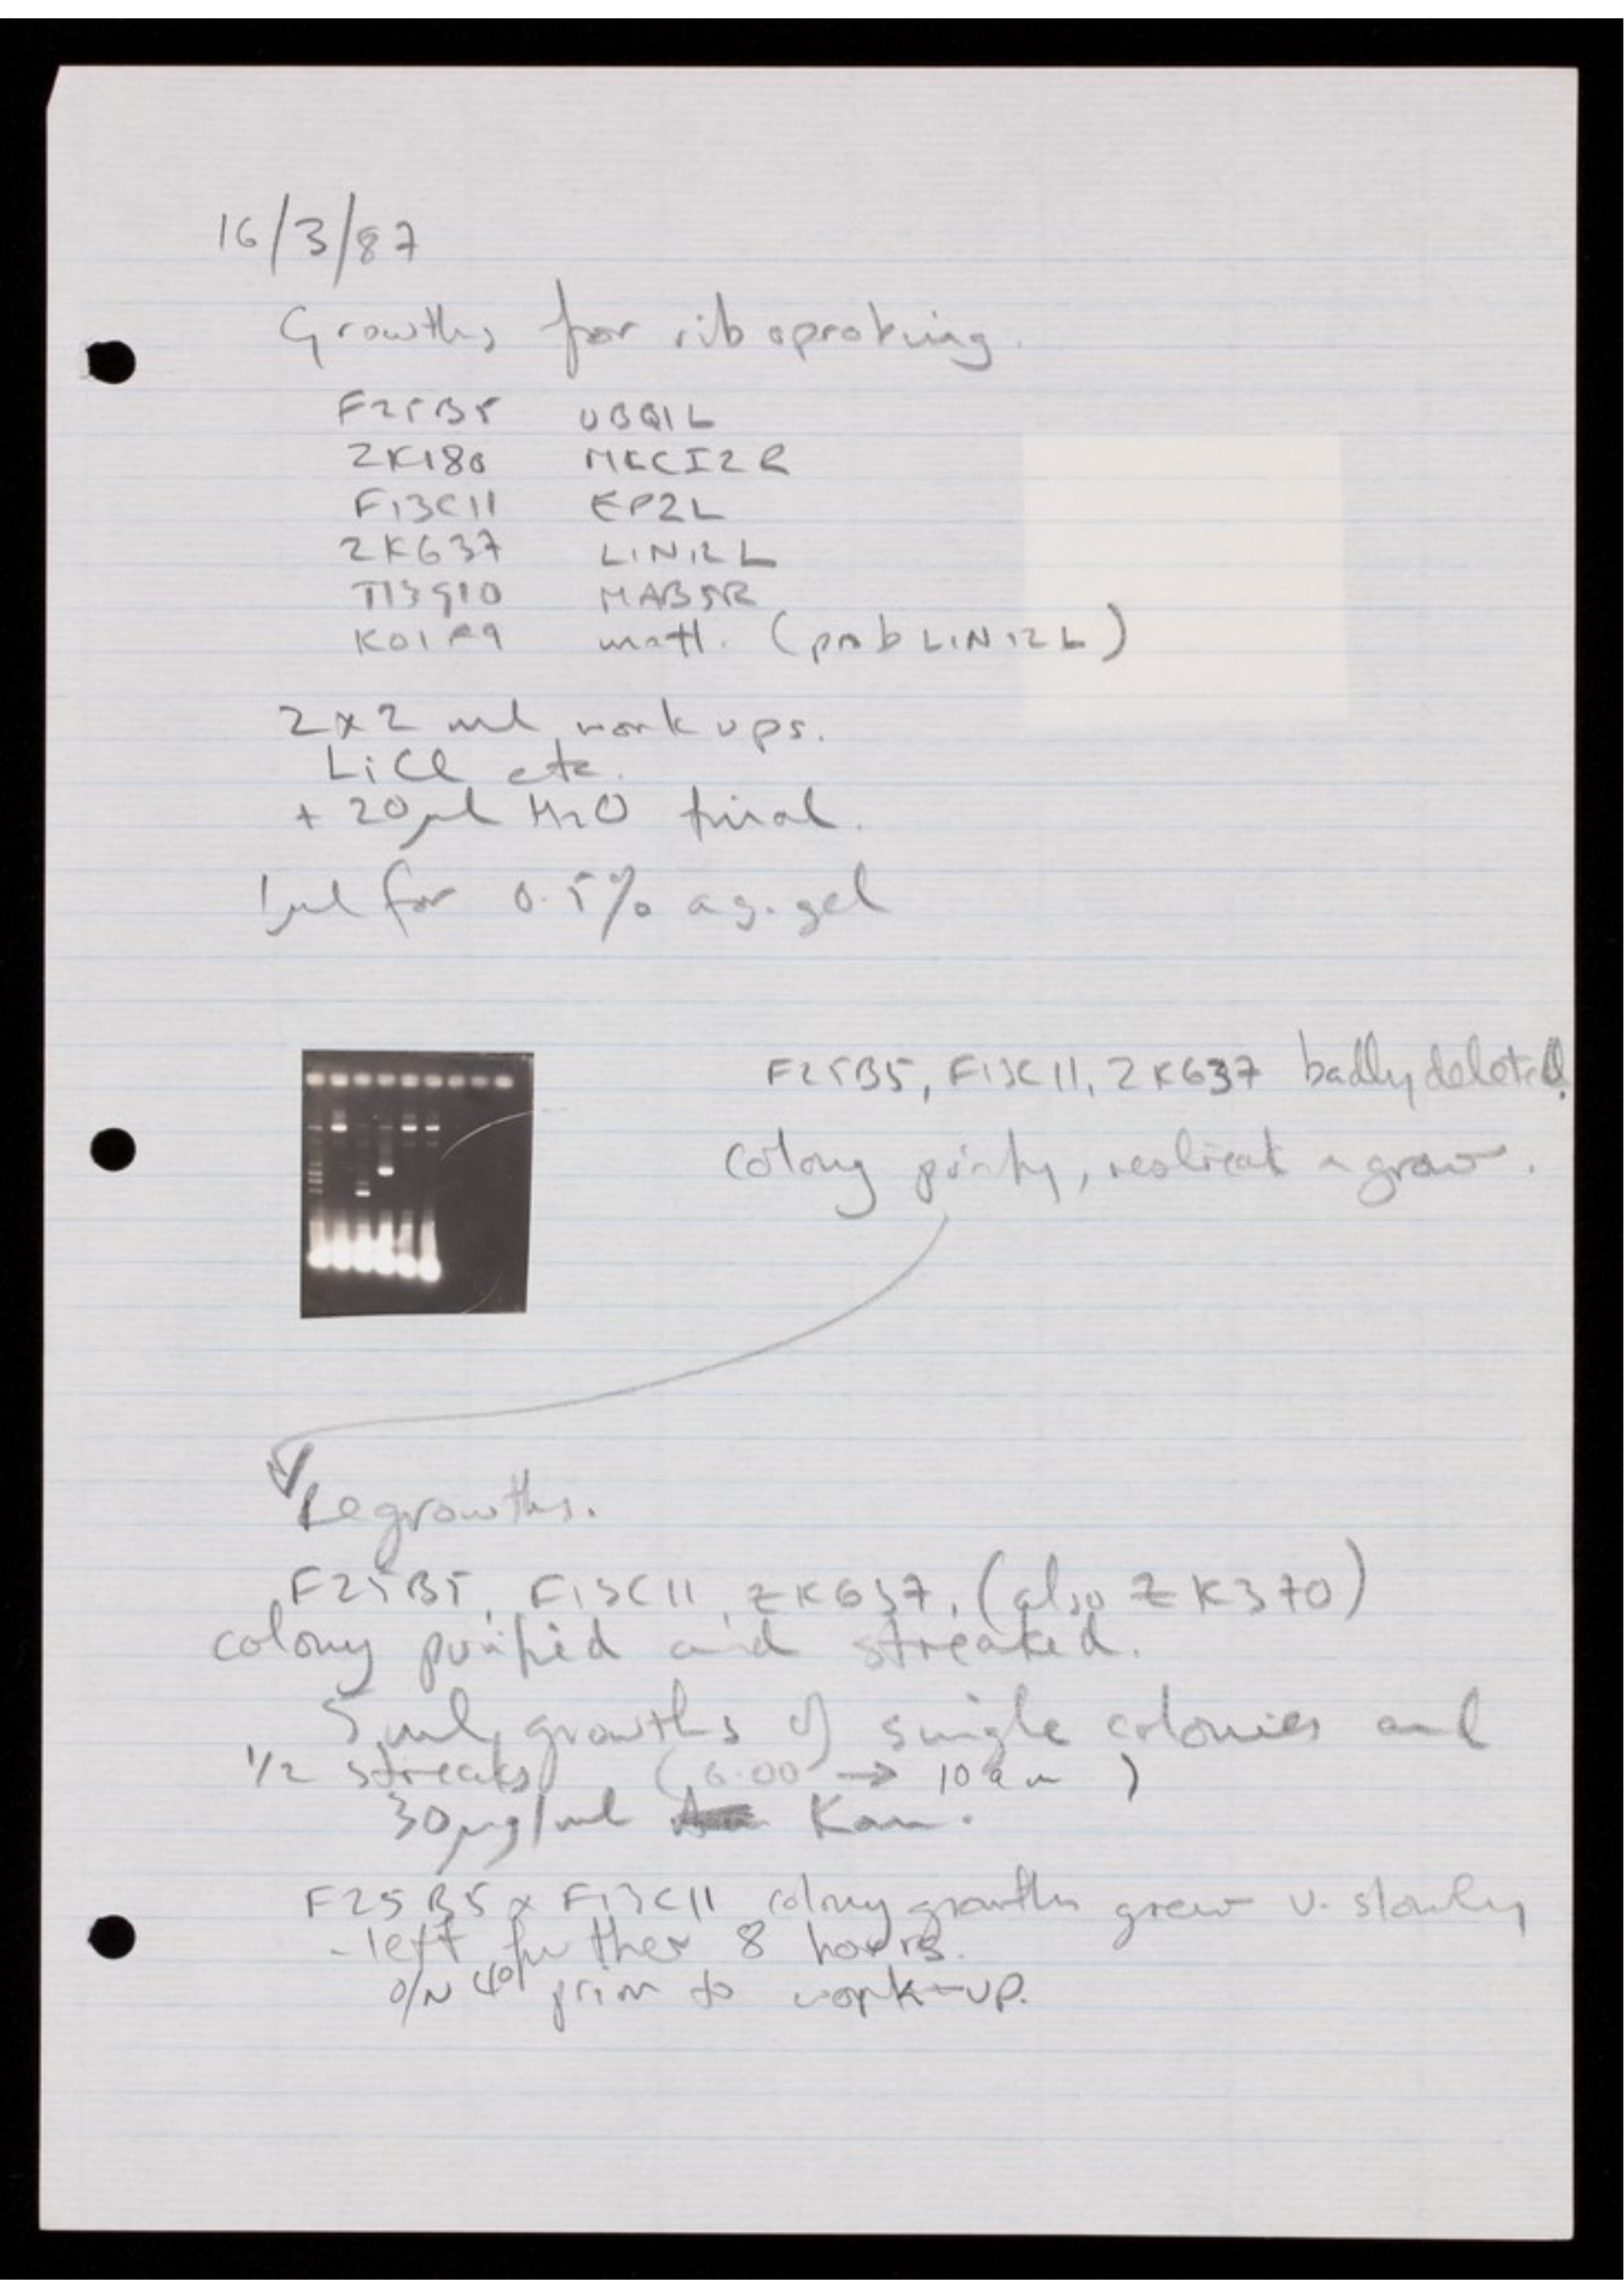 16/3/87
Growths for riboprobing.
F25B5 UBQ1L
ZK180 MECI2R
F13C11 EP2L
ZK637 LIN12L
T13G10 MAB5R
K01F9 unatt. (prob LIN12L)
2x2 ml work ups.
LiCl etc.
+ 20µl H2O final.
1µl for 0.5% ag. gel
F25B5, F13C11, ZK637 badly deleted.
colony purify, restreak & grow.
Regrowths.
F25B5, F13C11, ZK637, (also ZK370)
colony purified and streaked.
5ml growths of single colonies and
1/2 streaks (6.00 → 10am)
30µg/ml Kan.
F25B5 & F13C11 colony growths grew v. slowly
- left further 8 hours.
o/N 4° prior to work-up.